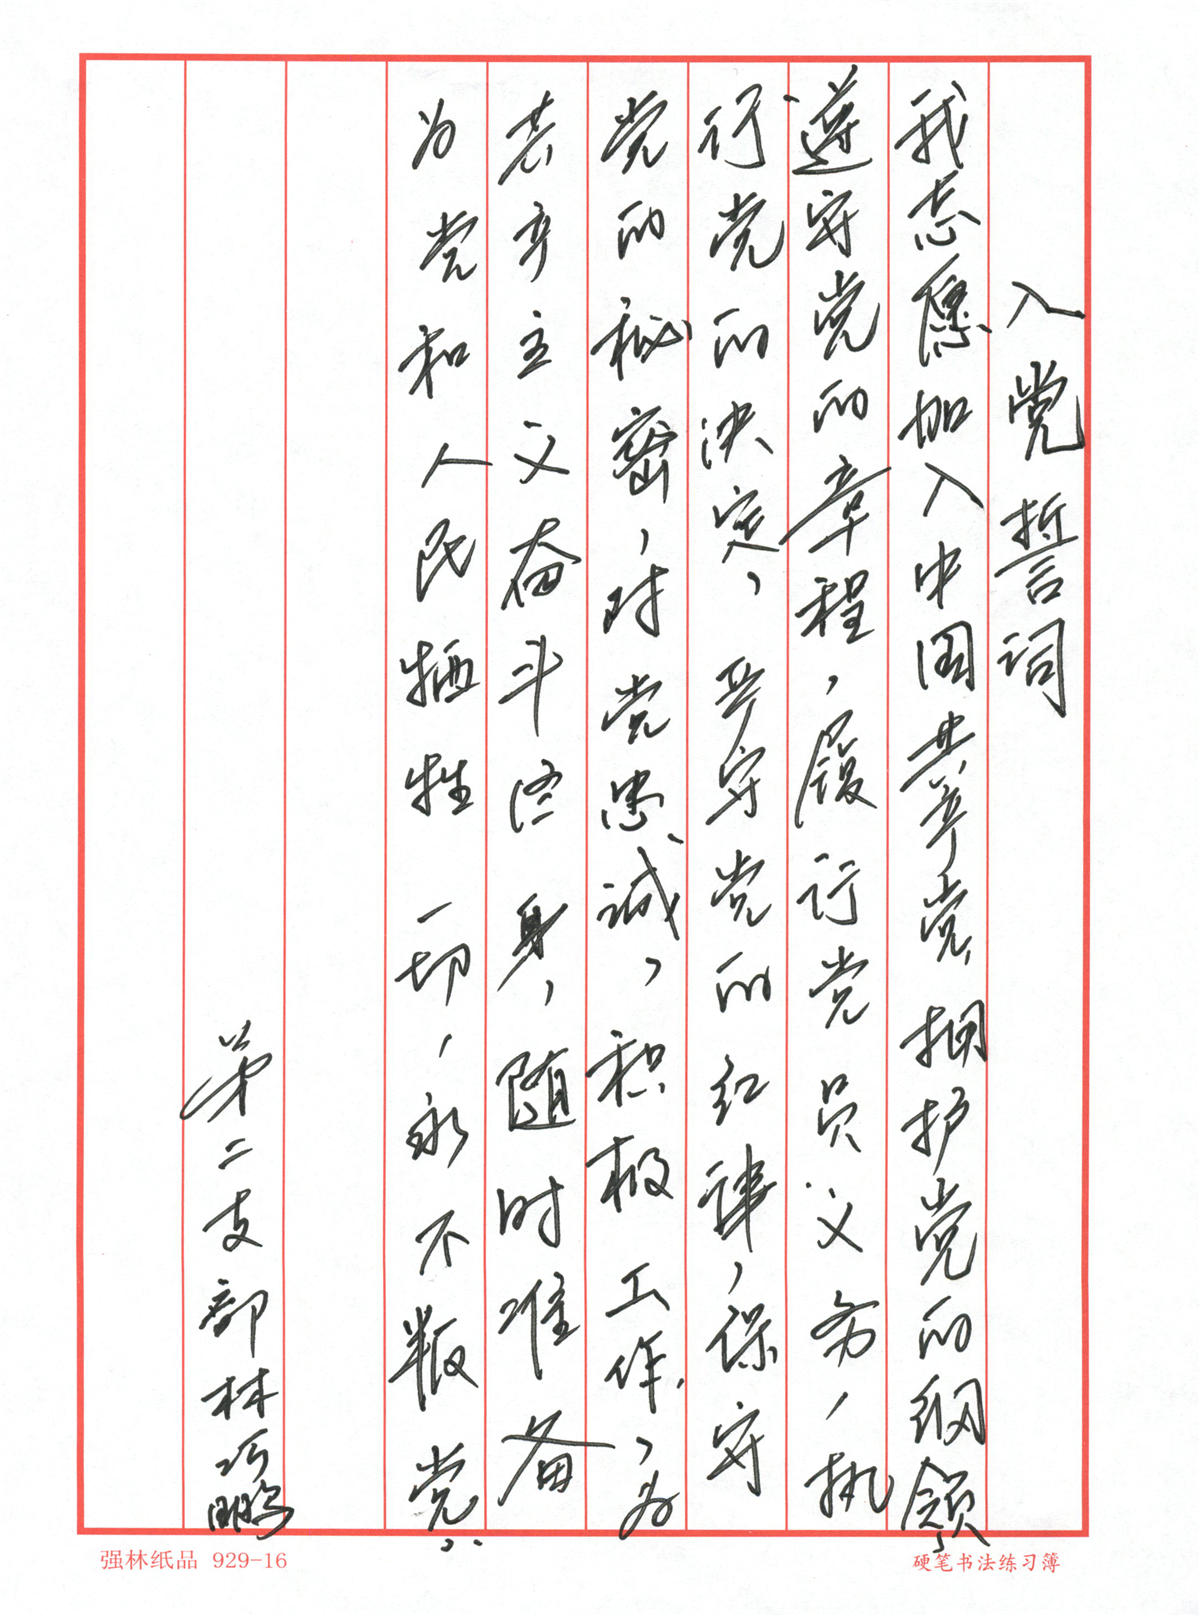 入党誓词
我志愿加入中国共产党,拥护党的纲领,
遵守党的章程,履行党员义务,执
行党的决定,严守党的纪律,保守
党的秘密,对党忠诚,积极工作,为
共产主义奋斗终身,随时准备
为党和人民牺牲一切,永不叛党。
第二支部林巧鹏
强林纸品 929-16
硬笔书法练习簿